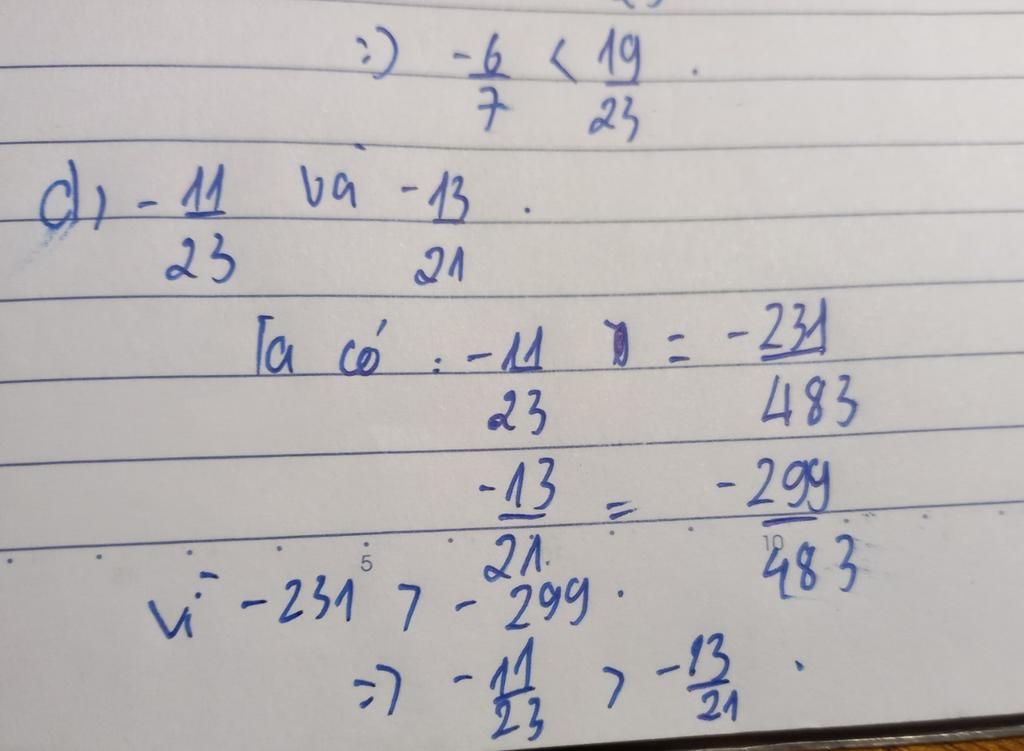 =) -6/7 < 19/23 .
d, -11/23 và -13/21 .
Ta có : -11/23 = -231/483
-13/21 = -299/483
5 10
Vì -231 > -299 .
=) -11/23 > -13/21 .